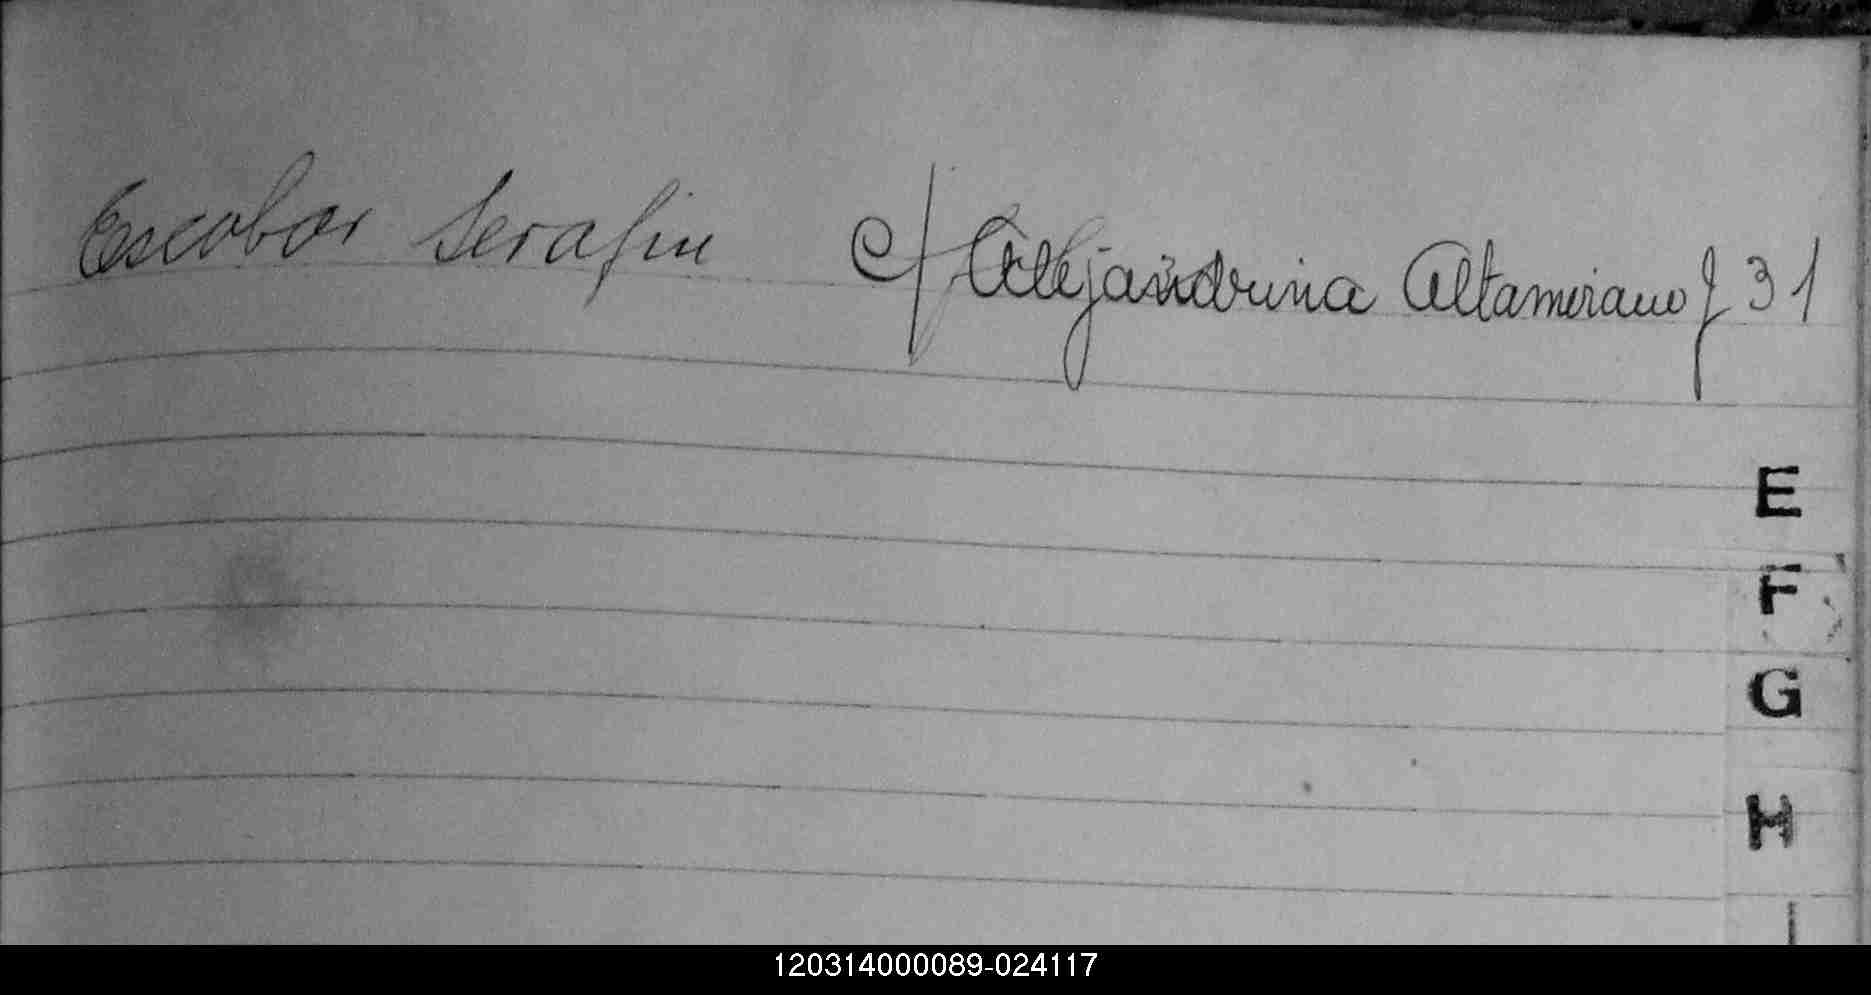 Escobar Serafin c/ Alejandrina Altamirano f 31
E
F
G
H
I
120314000089-024117